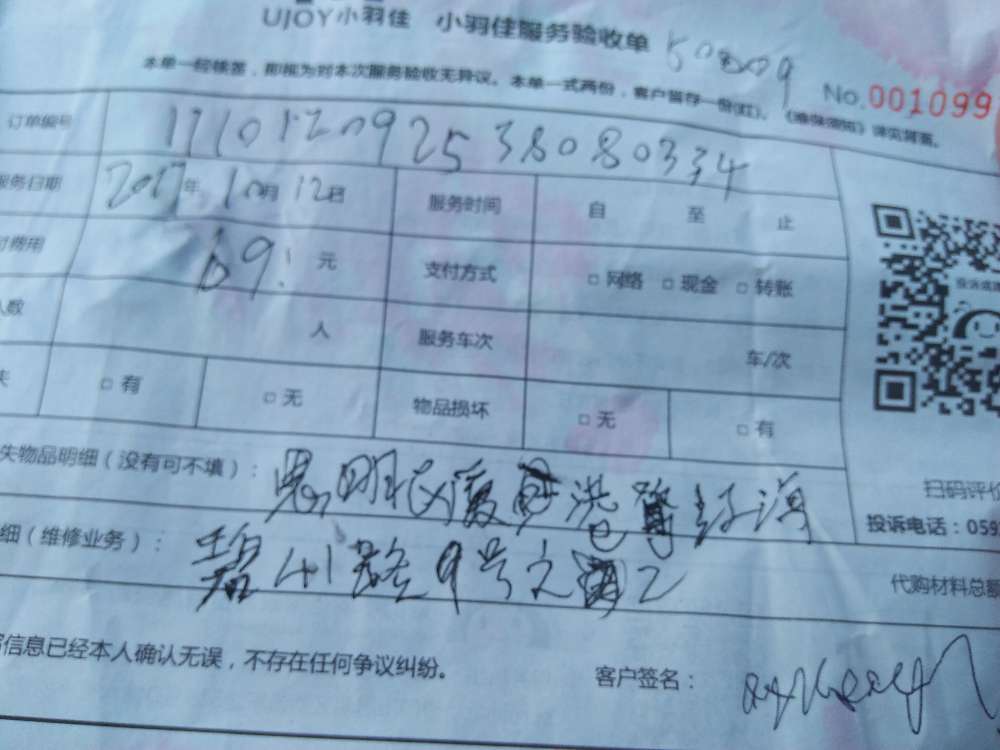 UJOY小羽佳 小羽佳服务验收单
No.001099
本单一经核签,即视为对本次服务验收无异议。本单一式两份,客户留存一份(红)。《维保须知》详见背面。
订单编号 171012092538080334
服务日期 2017年10月12日 服务时间 自 至 止
付费用 69 元 支付方式 □网络 □现金 □转账
人数 人 服务车次 车/次
失 □有 □无 物品损坏 □无 □有
失物品明细(没有可不填): 思明区厦
扫码评价
投诉电话:059
细(维修业务): 路9号之 2
代购材料总额
信息已经本人确认无误,不存在任何争议纠纷。
客户签名: